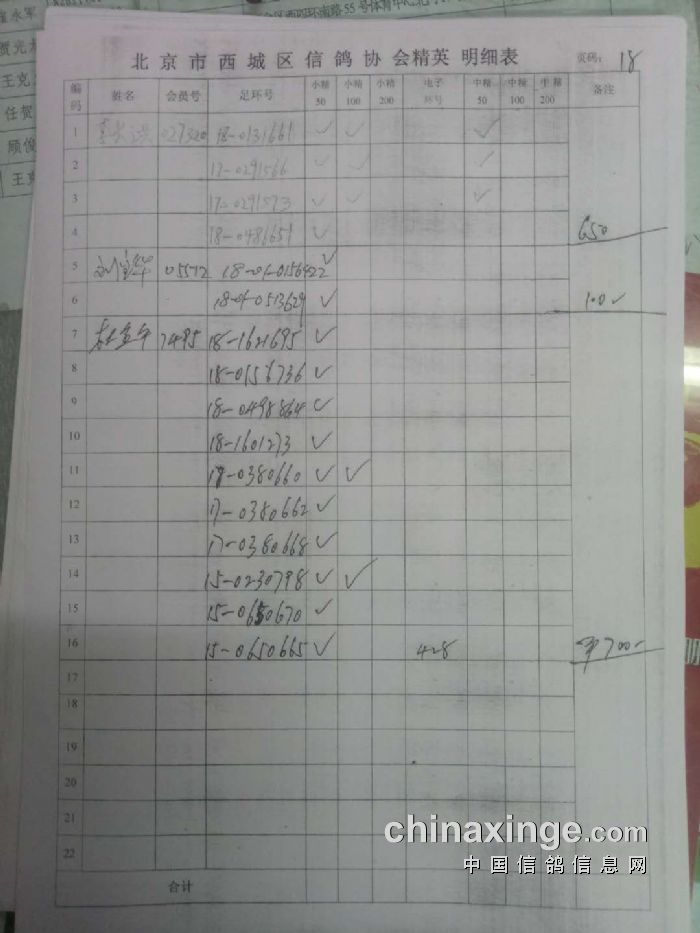 王克
任贺
顾俊
王克
北京市西城区信鸽协会精英 明细表
页码： 18
编码 姓名 会员号 足环号 小精50 小精100 小精200 电子环号 中精50 中精100 中精200 备注
1 027320 18-0131661 ✓ ✓ ✓
2 17-0291566 ✓ ✓ ✓
3 17-0291573 ✓ ✓ ✓
4 18-0486651 ✓ 650
5 刘宝华 05572 18-01-0156422 ✓
6 18-01-0513629 ✓ 100✓
7 7495 18-1621695 ✓
8 18-0156736 ✓
9 18-0498864 ✓
10 18-1601273 ✓
11 17-0380660 ✓ ✓
12 17-0380662 ✓
13 17-0380668 ✓
14 15-0230798 ✓ ✓
15 15-0650670 ✓
16 15-0650665 ✓ 428 700-
17
18
19
20
21
22
合计
chinaxinge.com
中国信鸽信息网